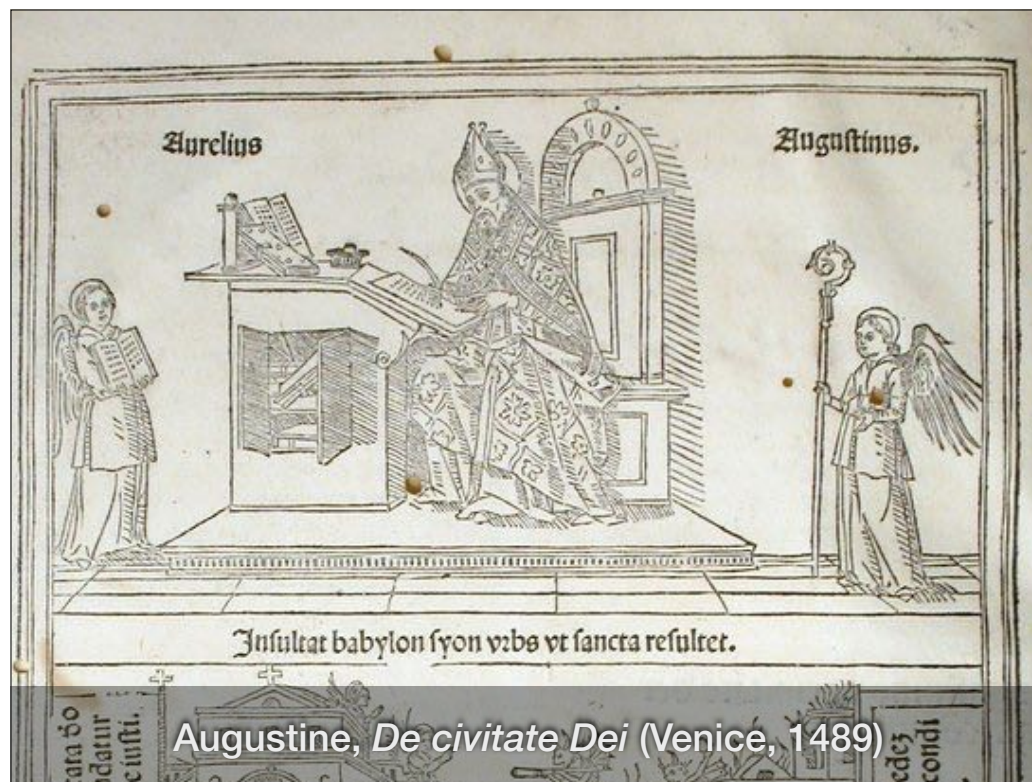 Aurelius
Augustinus.
Insultat babylon syon vrbs vt sancta resultet.
datur
iusti.
ondi
Augustine, De civitate Dei (Venice, 1489)